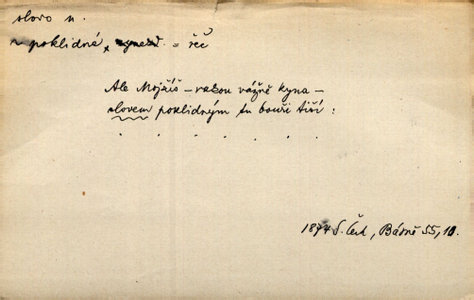 slovo n.
~ poklidné = řeč
Ale Mojžíš – rukou vážně kyna –
slovem poklidným tu bouři tiší :
. . . . . . .
1874 S. Čech, Básně 55, 10.